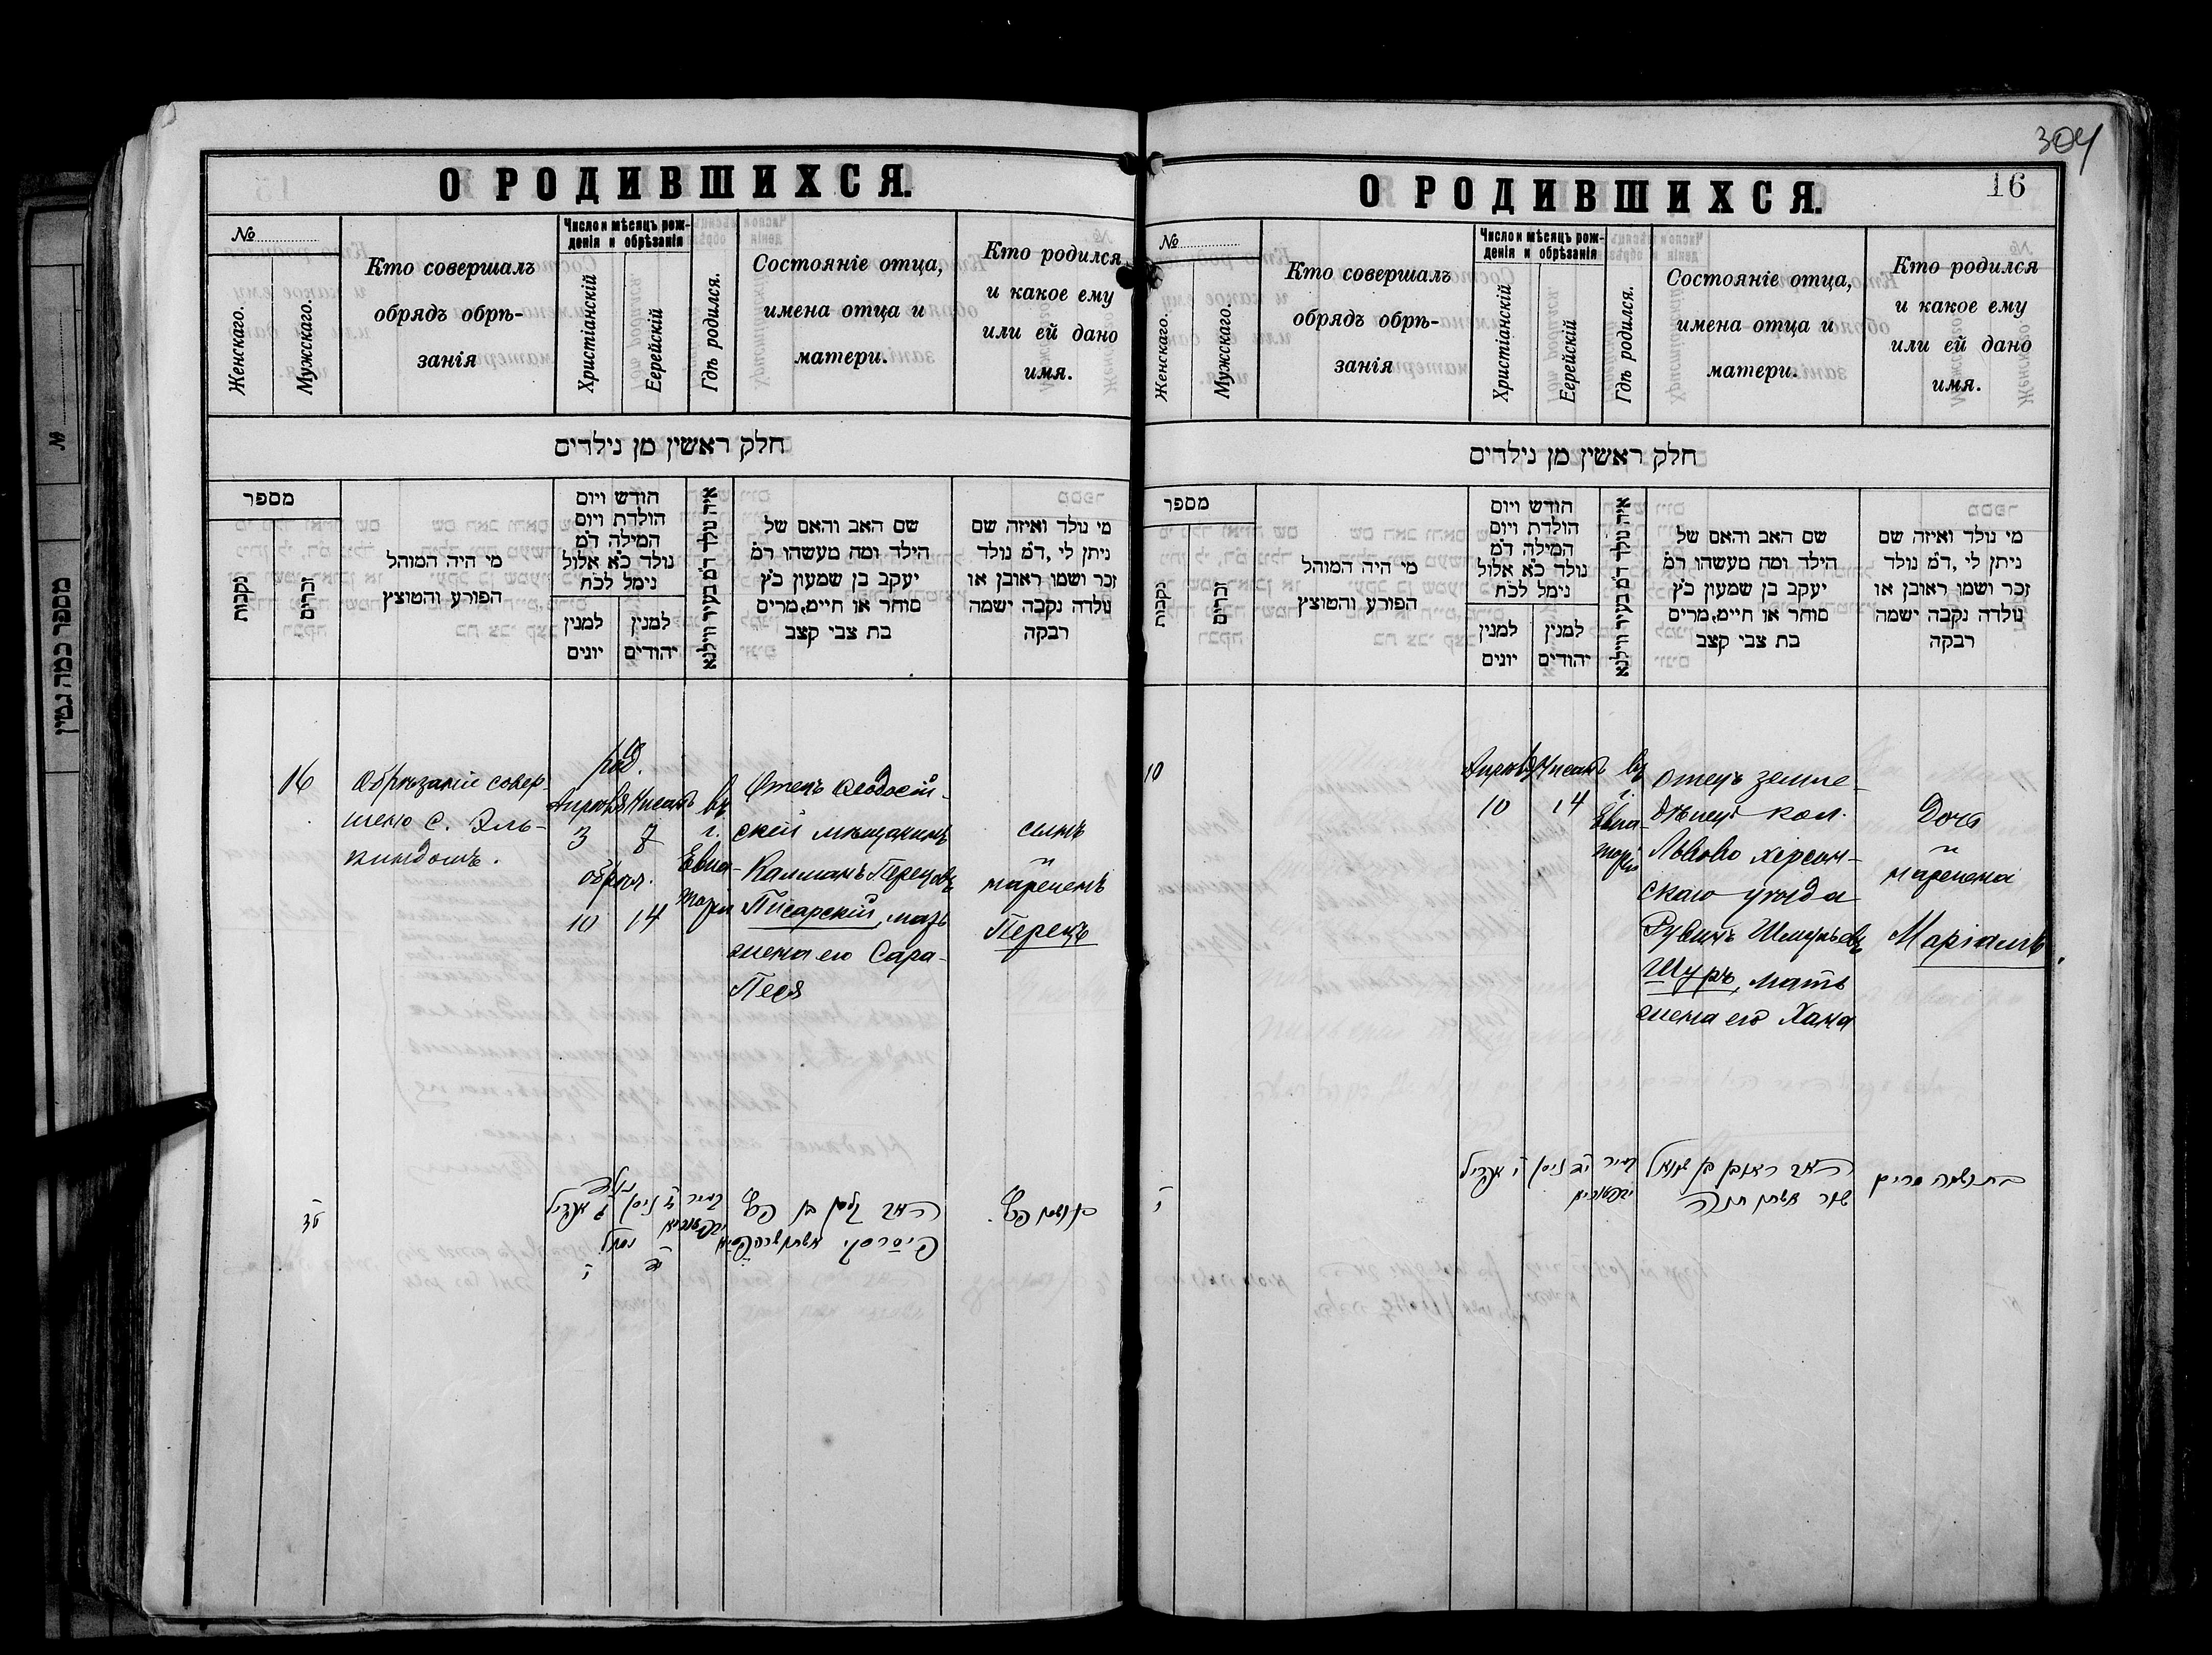 304
О РОДИВШИХСЯ.
№
Женскаго.
Мужскаго.
Кто совершалъ
обрядъ обрѣ-
занія
Число и мѣсяцъ рож-
денія и обрѣзанія
Христіанскій
Еерейскій
Гдѣ родился.
Состояніе отца,
имена отца и
матери.
Кто родился
и какое ему
или ей дано
имя.
חלק ראשין מן נילדים
מספר
נקבות
זכרים
מי היה המוהל
הפורע והמוצץ
חודש ויום
הולדת ויום
המילה דמ
נולד כא אלול
נימל לכח
למנין
יונים
למנין
יהודים
איה נולד דמ בעיר ווילנא
שם האב והאם של
הילד ומה מעשהו דמ
יעקב בן שמעון כץ
סוחר או חיים, מרים
בת צבי קצב
מי נולד ואיזה שם
ניתן לי, דמ נולד
זכר ושמו ראובן או
נולדה נקבה ישמה
רבקה
16
Обрѣзаніе совер-
шено С. Эль-
киндомъ.
род.
Апрѣля
3
Нисанъ
7
обрѣз.
10
14
въ
г.
Евпа-
торіи
Отецъ Ѳеодосій-
скій мѣщанинъ
Калманъ Перецовъ
Писарскій, мать
жена его Сара-
Песя
сынъ
нареченъ
Перецъ
О РОДИВШИХСЯ.
16
№
Женскаго.
Мужскаго.
Кто совершалъ
обрядъ обрѣ-
занія
Число и мѣсяцъ рож-
денія и обрѣзанія
Христіанскій
Еерейскій
Гдѣ родился.
Состояніе отца,
имена отца и
матери.
Кто родился
и какое ему
или ей дано
имя.
חלק ראשין מן נילדים
מספר
נקבות
זכרים
מי היה המוהל
הפורע והמוצץ
חודש ויום
הולדת ויום
המילה דמ
נולד כא אלול
נימל לכח
למנין
יונים
למנין
יהודים
איה נולד דמ בעיר ווילנא
שם האב והאם של
הילד ומה מעשהו דמ
יעקב בן שמעון כץ
סוחר או חיים, מרים
בת צבי קצב
מי נולד ואיזה שם
ניתן לי, דמ נולד
זכר ושמו ראובן או
נולדה נקבה ישמה
רבקה
10
Апрѣля
10
Нисанъ
14
въ
г.
Евпа-
торіи
Отецъ земле-
дѣлецъ кол.
Львово херсон-
скаго уѣзда
Рувинъ Шмульевъ
Шуръ, мать
жена его Хана
Дочь
наречена
Маріамъ.
האב ראובן בן שמואל
שור אשתו חנה
בת ושמה מרים
№
מספר כמה גטין